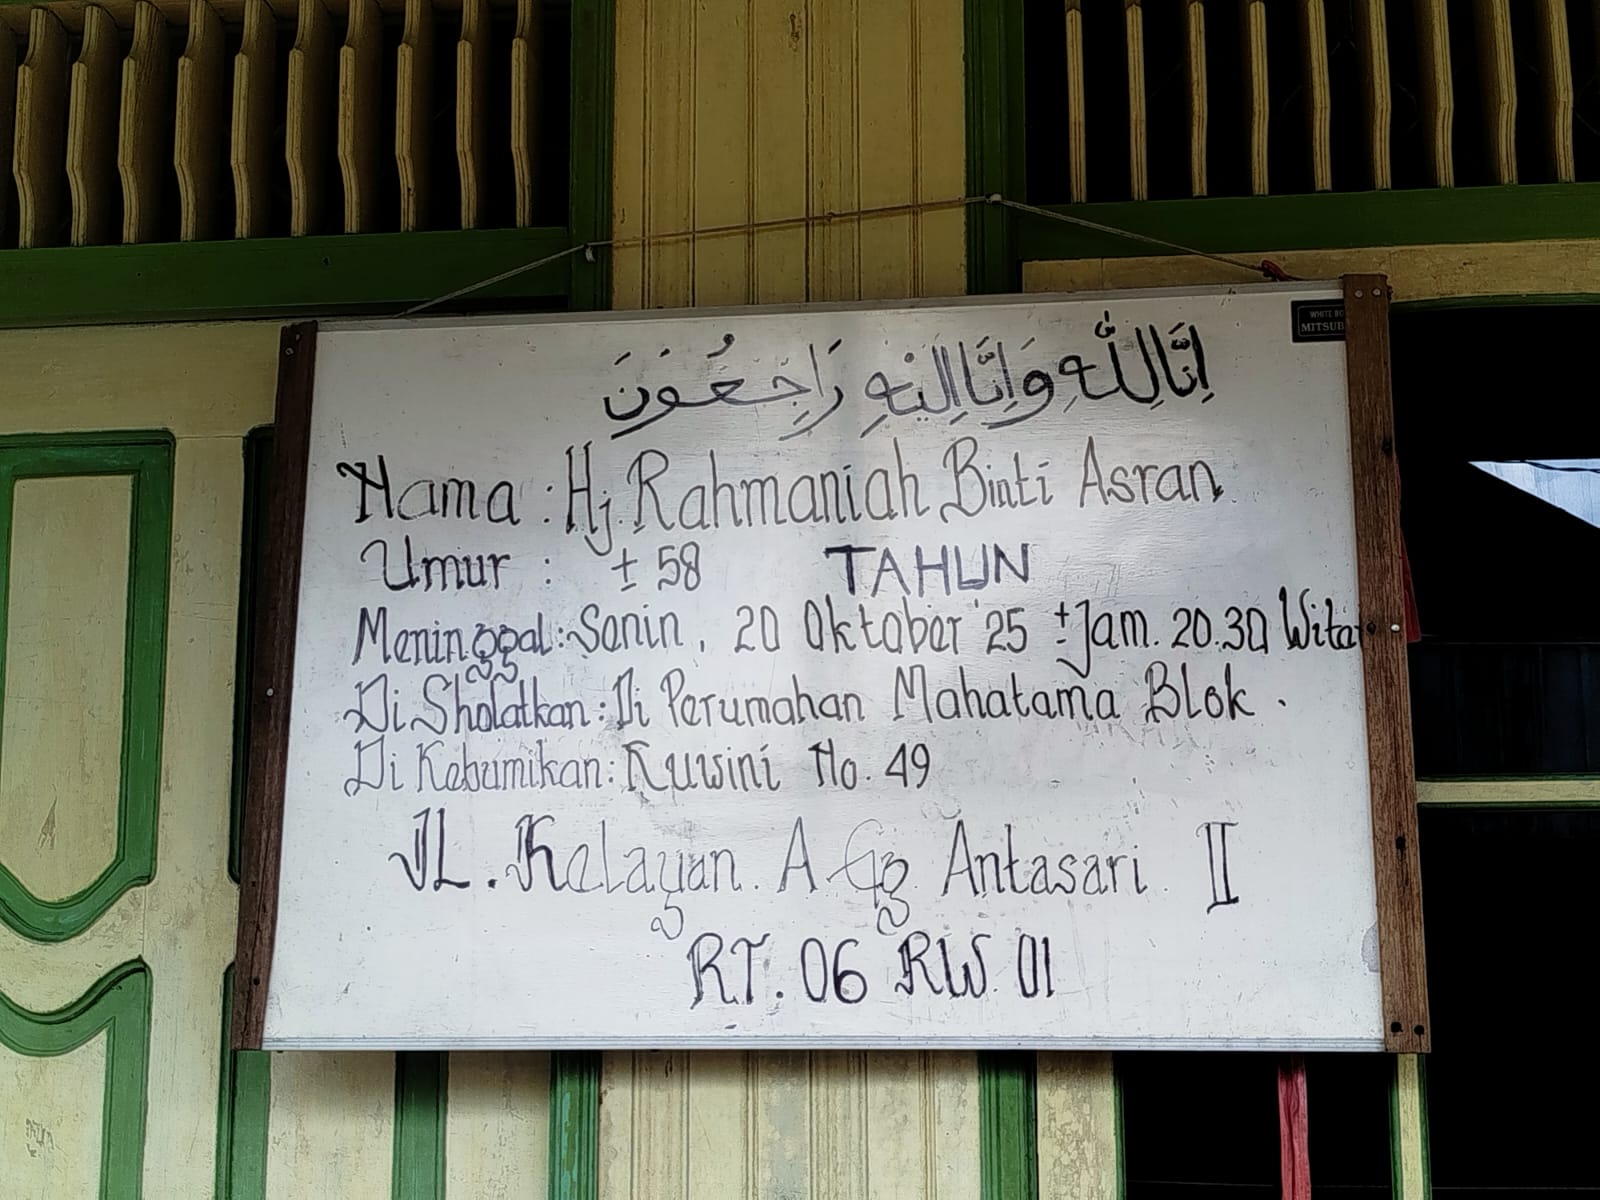 WHITE BO
MITSUB
اِنَّا لِلّٰهِ وَاِنَّا اِلَيْهِ رَاجِعُوْنَ
Nama : Hj. Rahmaniah Binti Asran
Umur : ± 58 TAHUN
Meninggal : Senin, 20 Oktober '25 ± Jam. 20.30 Wita
Di Sholatkan : Di Perumahan Mahatama Blok.
Di Kebumikan : Kuwini No. 49
JL. Kelayan. A Gg Antasari II
RT. 06 RW. 01